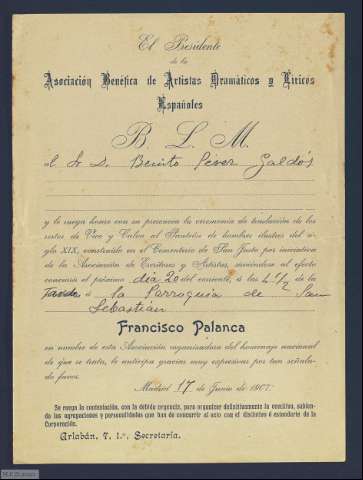 El Presidente
de la
Asociación Benéfica de Artistas Dramáticos y Líricos
Españoles
B. L. M.
al Sr D. Benito Perez Galdós
y le ruega honre con su presencia la ceremonia de traslación de los
restos de Vico y Calvo al Panteón de hombres ilustres del si-
glo XIX, construído en el Cementerio de San Justo por iniciativa
de la Asociación de Escritores y Artistas, sirviéndose al efecto
concurrir el próximo día 20 del corriente, á las 4 1/2 de la
Tarde á la Parroquia de San
Sebastián
Francisco Palanca
en nombre de esta Asociación organizadora del homenaje nacional
de que se trata, le anticipa gracias muy expresivas por tan señala-
do favor.
Madrid 17 de Junio de 1907.
Se ruega la contestación, con la debida urgencia, para organizar definitivamente la comitiva, sabien-
do las agrupaciones y personalidades que han de concurrir al acto con el distintivo ó estandarte de la
Corporación.
Arlabán, 7, 1.º, Secretaría.